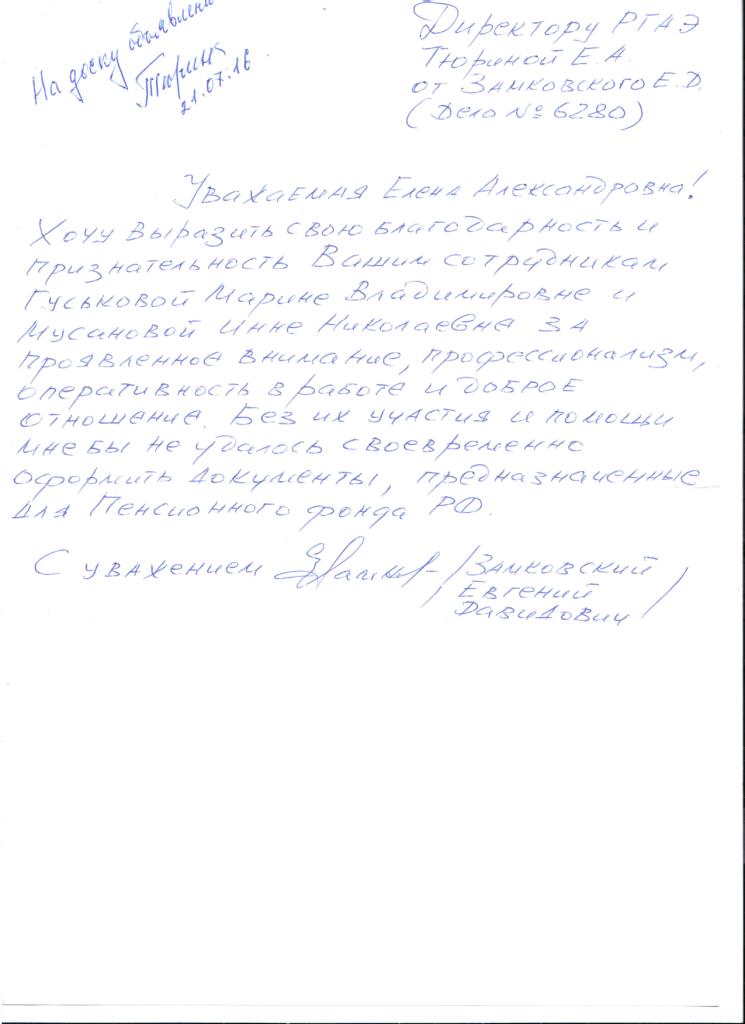 На доску объявлени
Тюрина
21.07.16
Директору РГАЭ
Тюриной Е.А.
от Замковского Е.Д.
(Дело № 6280)
Уважаемая Елена Александровна!
Хочу выразить свою благодарность и
признательность Вашим сотрудникам
Гуськовой Марине Владимировне и
Мусановой Инне Николаевне за
проявленное внимание, профессионализм,
оперативность в работе и доброе
отношение. Без их участия и помощи
мне бы не удалось своевременно
оформить документы, предназначенные
для Пенсионного фонда РФ.
С уважением /Замковский
Евгений
Давидович/